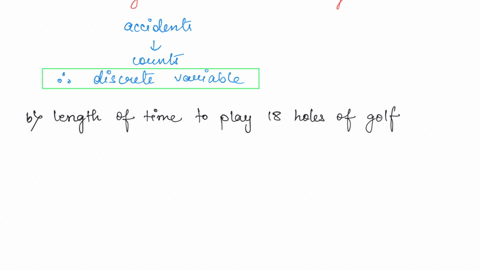 accidents
↓
counts
∴ discrete variable
b) length of time to play 18 holes of golf